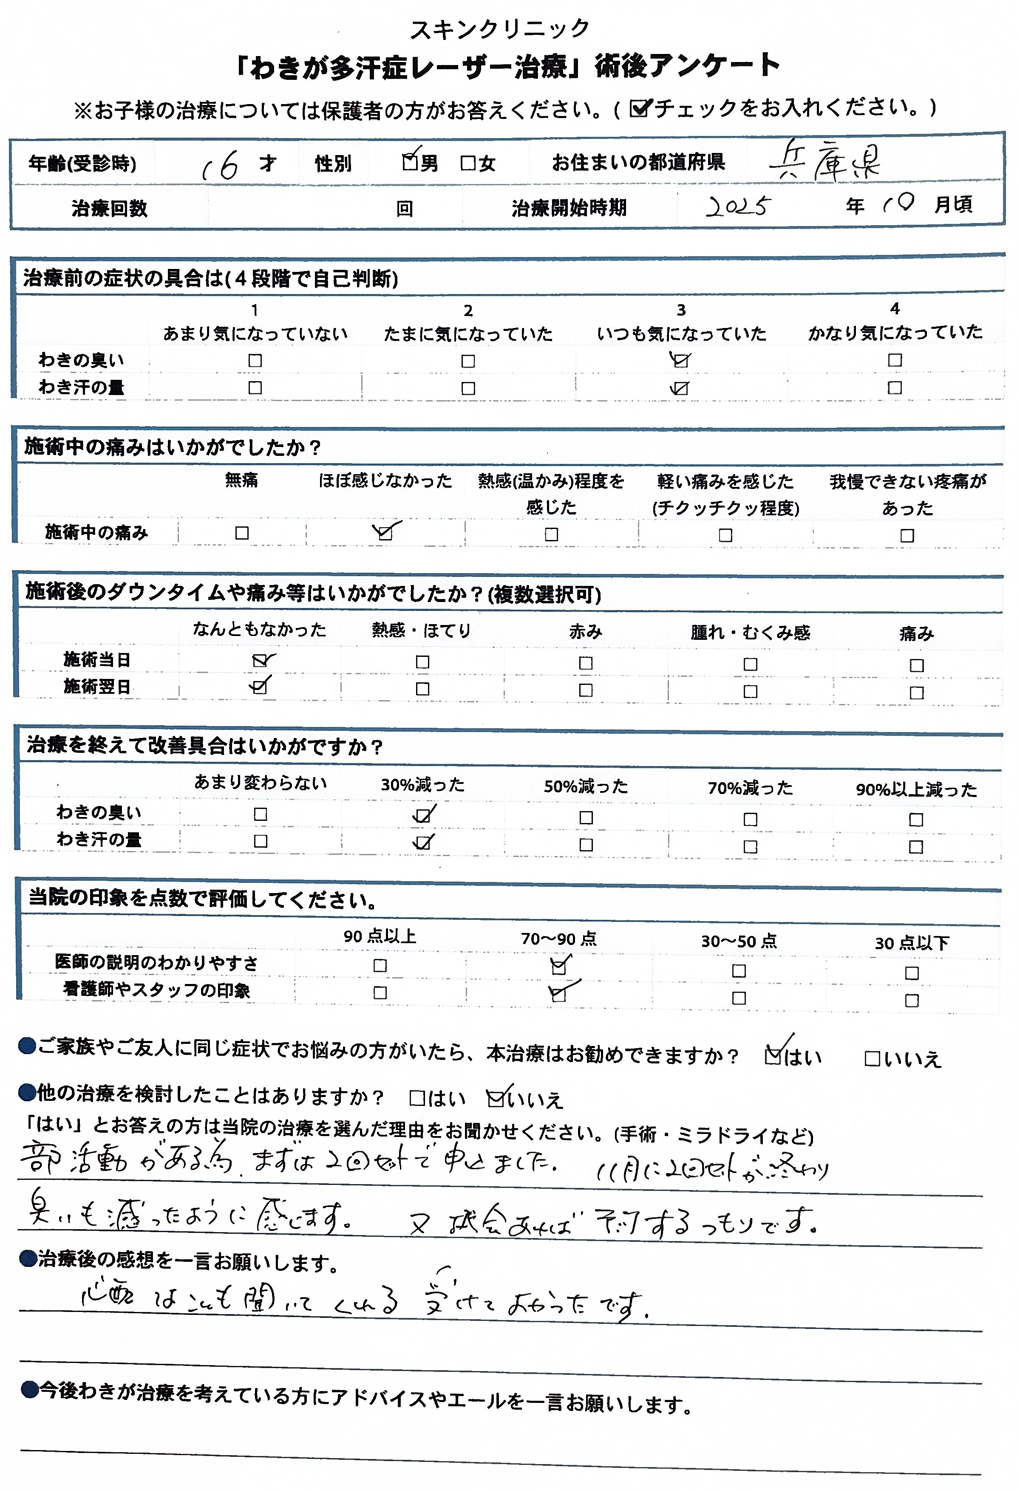 スキンクリニック
「わきが多汗症レーザー治療」術後アンケート
※お子様の治療については保護者の方がお答えください。(☑チェックをお入れください。)
年齢(受診時) 16 才 性別 ☑男 □女 お住まいの都道府県 兵庫県
治療回数 回 治療開始時期 2025 年 10 月頃
治療前の症状の具合は(4段階で自己判断)
1 2 3 4
あまり気になっていない たまに気になっていた いつも気になっていた かなり気になっていた
わきの臭い □ □ ☑ □
わき汗の量 □ □ ☑ □
施術中の痛みはいかがでしたか?
無痛 ほぼ感じなかった 熱感(温かみ)程度を 軽い痛みを感じた 我慢できない疼痛が
感じた (チクッチクッ程度) あった
施術中の痛み □ ☑ □ □ □
施術後のダウンタイムや痛み等はいかがでしたか?(複数選択可)
なんともなかった 熱感・ほてり 赤み 腫れ・むくみ感 痛み
施術当日 ☑ □ □ □ □
施術翌日 ☑ □ □ □ □
治療を終えて改善具合はいかがですか?
あまり変わらない 30%減った 50%減った 70%減った 90%以上減った
わきの臭い □ ☑ □ □ □
わき汗の量 □ ☑ □ □ □
当院の印象を点数で評価してください。
90点以上 70~90点 30~50点 30点以下
医師の説明のわかりやすさ □ ☑ □ □
看護師やスタッフの印象 □ ☑ □ □
●ご家族やご友人に同じ症状でお悩みの方がいたら、本治療はお勧めできますか? ☑はい □いいえ
●他の治療を検討したことはありますか? □はい ☑いいえ
「はい」とお答えの方は当院の治療を選んだ理由をお聞かせください。(手術・ミラドライなど)
部活動がある為、まずは2回セットで申込ました. 11月に2回セットが終わり
臭いも減ったように感じます。 又機会あれば するつもりです。
●治療後の感想を一言お願いします。
心配 も聞いてくれる 受けてよかったです.
●今後わきが治療を考えている方にアドバイスやエールを一言お願いします。